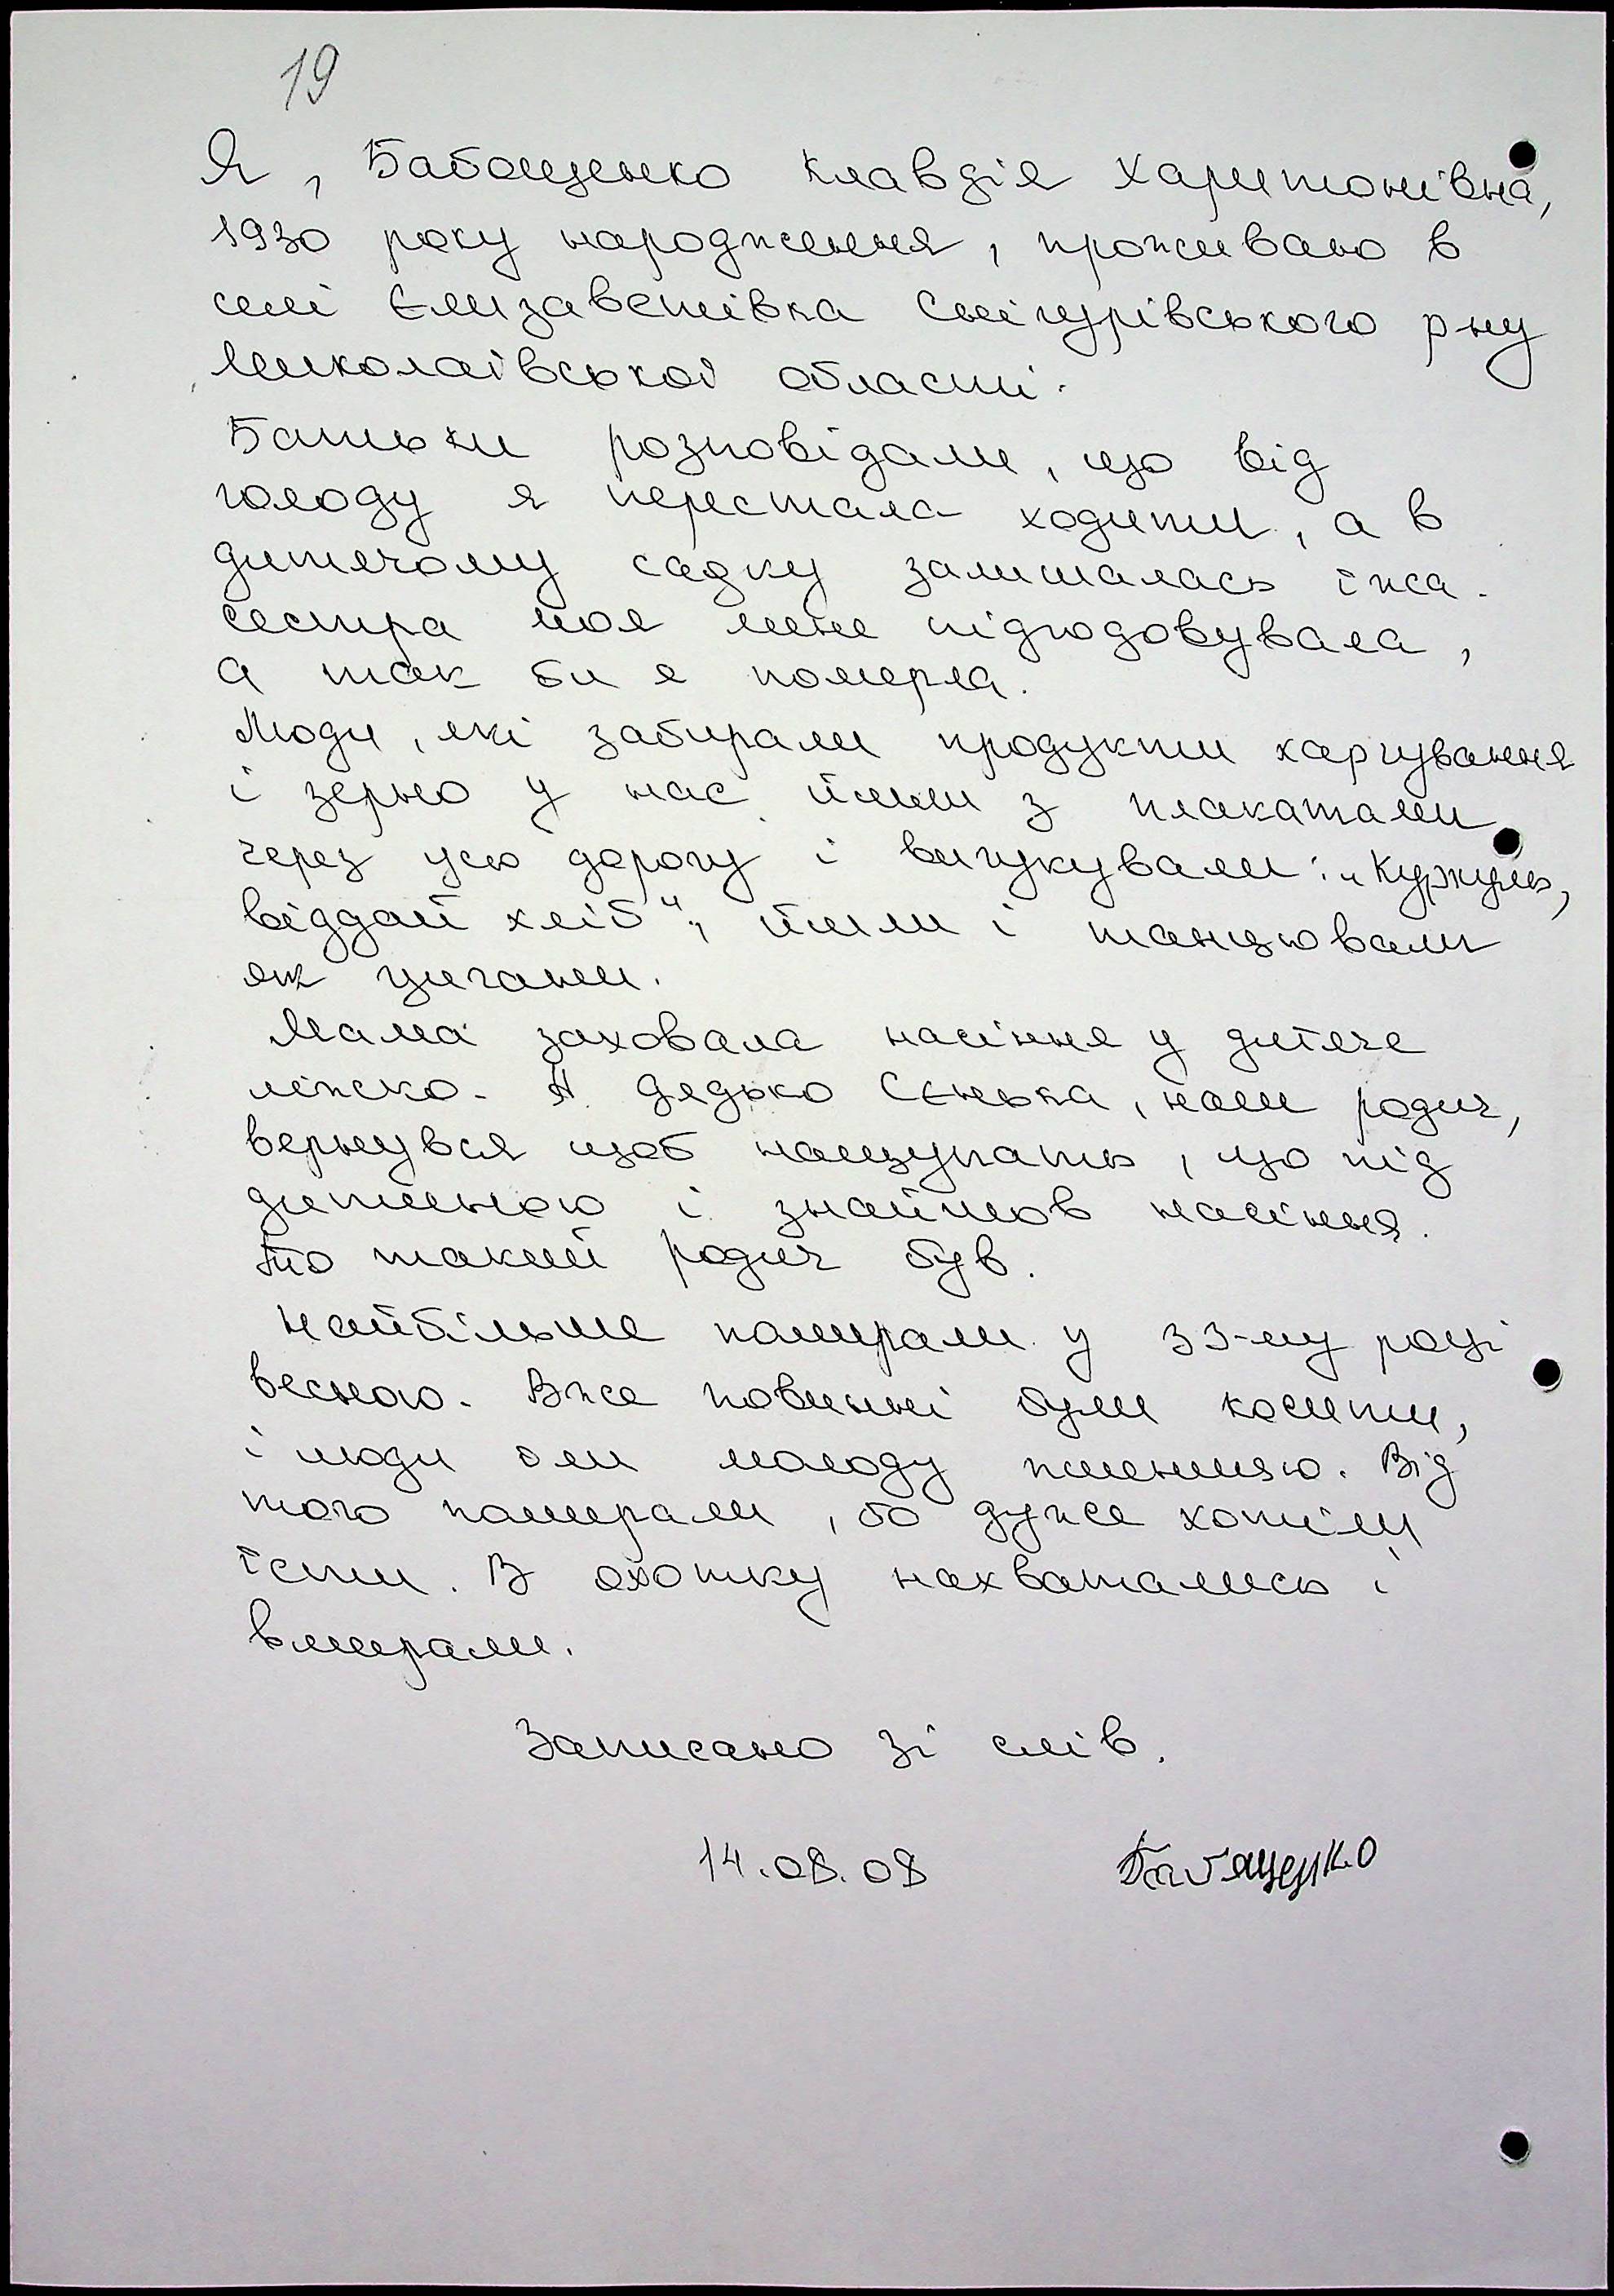 19
Я, Бабащенко Клавдія Харитонівна,
1930 року народження, проживаю в
селі Єлизаветівка Снігурівського р-ну
Миколаївської області.
Батьки розповідали, що від
голоду я перестала ходити, а в
дитячому садку залишалась їжа.
Сестра моя мене підгодовувала,
а так би я померла.
Люди, які забирали продукти харчування
і зерно у нас йшли з плакатами
через усю дорогу і вигукували: „Куркуль,
віддай хліб“, йшли і танцювали
як цигани.
Мама заховала насіння у дитяче
ліжко. А дядько Сєнька, наш родич,
вернувся щоб нащупать, що під
дитиною і знайшов насіння.
То такий родич був.
Найбільше помирали у 33-му році
весною. Вже повинні були косити,
і люди їли молоду пшеницю. Від
того помирали, бо дуже хотіли
їсти. В охотку нахватались і
вмирали.
Записано зі слів.
14.08.08 Бабащенко